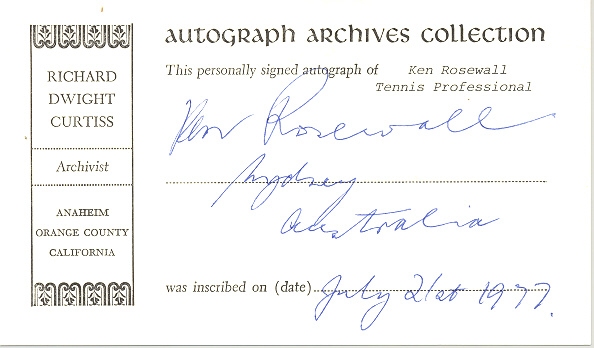 autograph archives collection
RICHARD
DWIGHT
CURTISS
Archivist
ANAHEIM
ORANGE COUNTY
CALIFORNIA
This personally signed autograph of Ken Rosewall
Tennis Professional
Ken Rosewall
Sydney
Australia
was inscribed on (date) July 21st 1977.